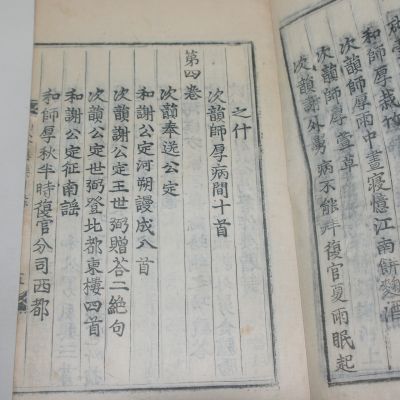 和師厚栽竹
次韻師厚雨中晝寢憶江南餅麴酒
次韻師厚萱草
次韻謝外舅病不能拜復官夏雨眠起
之什
次韻師厚病間十首
第四卷
次韻奉送公定
和謝公定河朔謾成八首
次韻謝公定王世弼贈荅二絶句
次韻公定世弼登北都東樓四首
和謝公定征南謠
和師厚秋半時復官分司西都